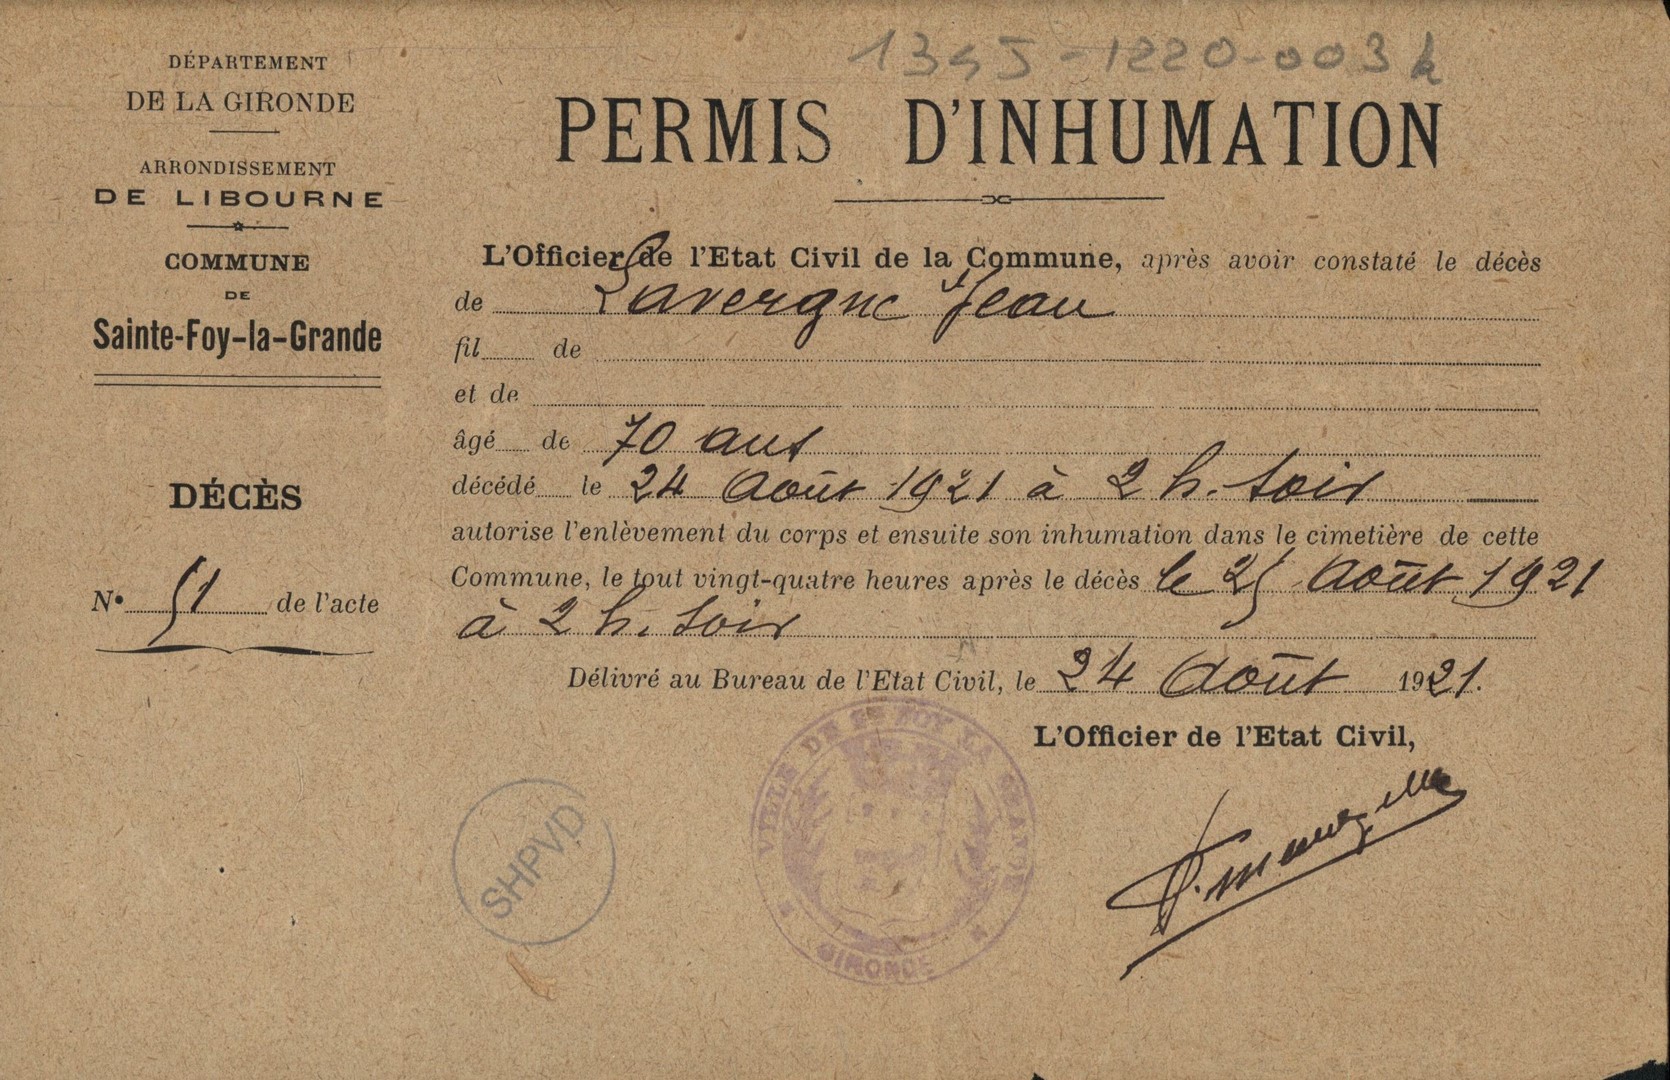 1345-1220-003k
DÉPARTEMENT
DE LA GIRONDE
ARRONDISSEMENT
DE LIBOURNE
COMMUNE
DE
Sainte-Foy-la-Grande
DÉCÈS
N° 51 de l'acte
PERMIS D'INHUMATION
L'Officier de l'Etat Civil de la Commune, après avoir constaté le décès
de Lavergne Jean
fil de
et de
âgé de 70 ans
décédé le 24 Août 1921 à 2 h. soir
autorise l'enlèvement du corps et ensuite son inhumation dans le cimetière de cette
Commune, le tout vingt-quatre heures après le décès le 25 Août 1921
à 2 h. soir
Délivré au Bureau de l'Etat Civil, le 24 Août 1921.
L'Officier de l'Etat Civil,
VILLE DE STE FOY LA GRANDE
GIRONDE
SHPVD